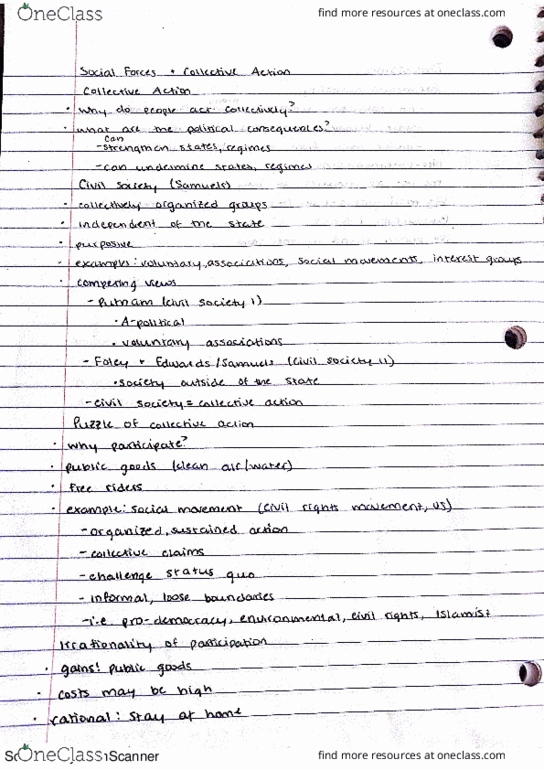 OneClass find more resources at oneclass.com
Social Forces + Collective Action
Collective Action
· Why do people act collectively?
· what are the political consequences?
can
-strengthen states, regimes
-can undermine states, regimes
Civil Society (Samuels)
· collectively organized groups
· independent of the state
· purposive
· examples: voluntary, associations, social movements, interest groups
· competing views
- Putnam (civil society I)
· A-political
· voluntary associations
- Foley + Edwards/Samuels (civil society II)
· society outside of the state
-civil society = collective action
Puzzle of collective action
· why participate?
· public goods (clean air/water)
· free riders
· example: social movement (civil rights movement, US)
-organized, sustained action
-collective claims
-challenge status quo
-informal, loose boundaries
-i.e pro-democracy, environmental, civil rights, Islamist
Irrationality of participation
· gains: public goods
· costs may be high
· rational: stay at home
OneClass Scanner find more resources at oneclass.com